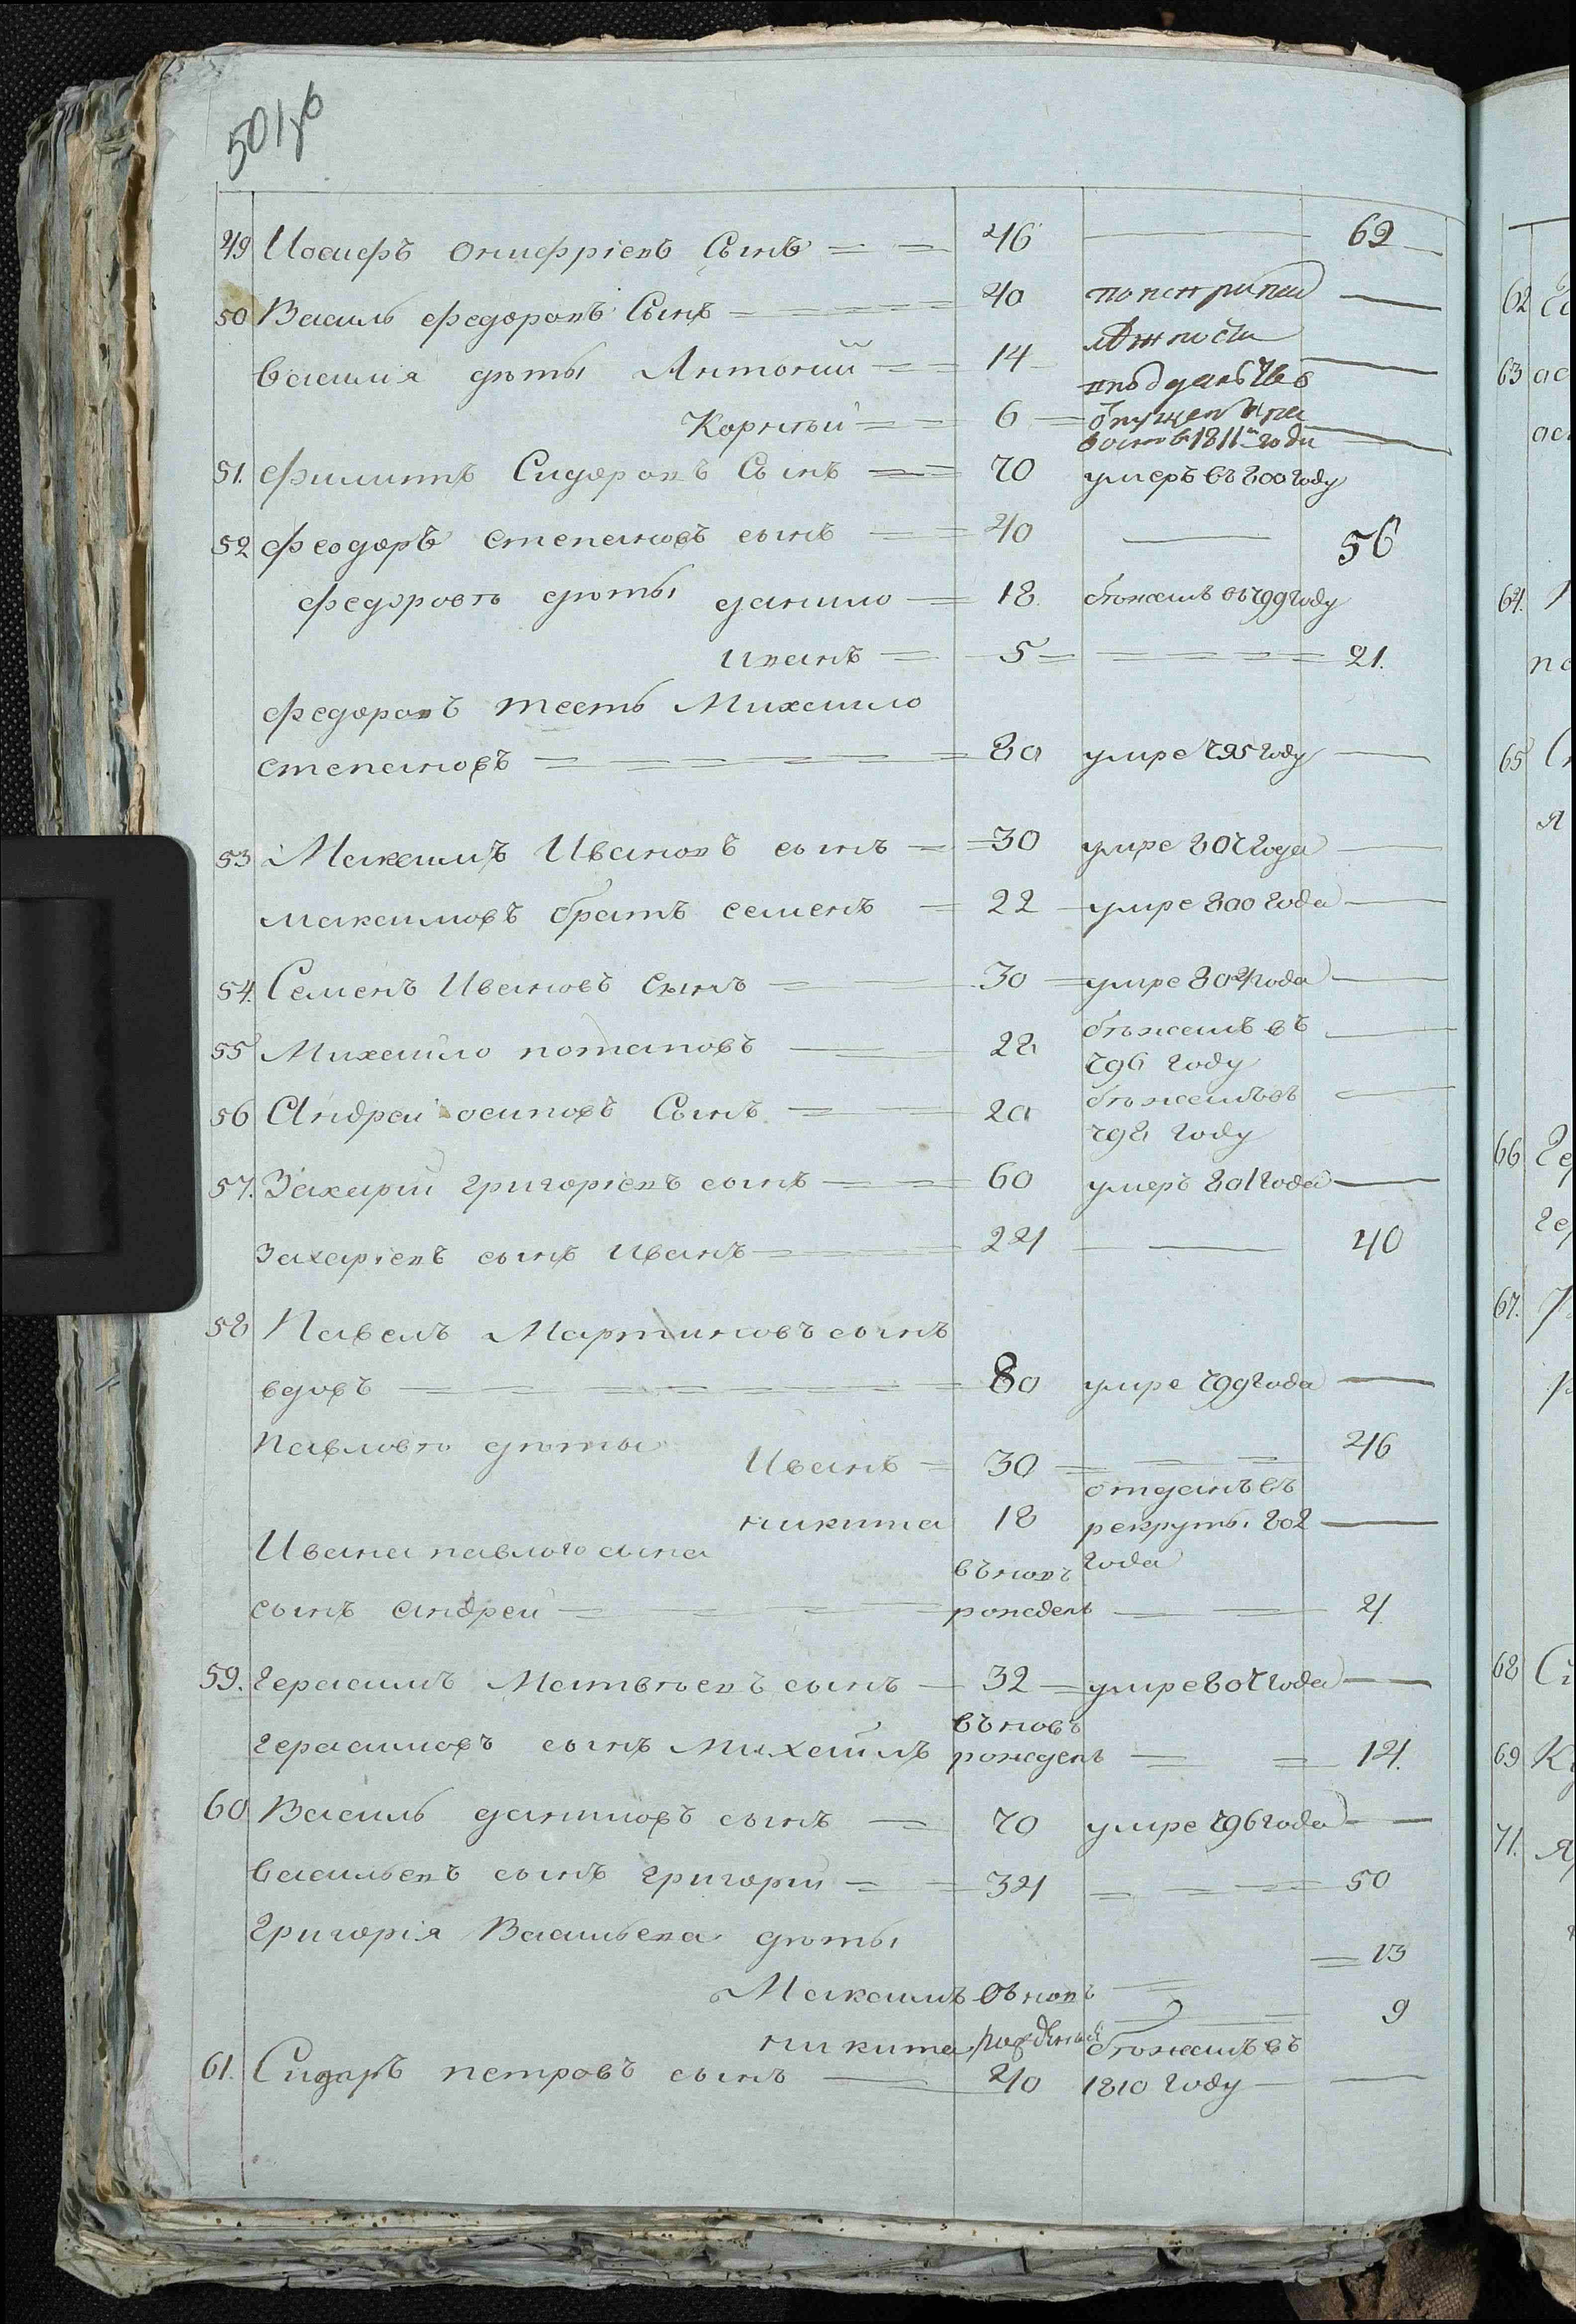 501 об
49 Иосифъ Онифріевъ Сынъ 46 62
50 Василь Федоровъ Сынъ 40
Василія дѣты Антоний 14
Корнѣй 6
1811го года
51. Филиппъ Сидоровъ Сынъ 70 умеръ въ 800 году
52 Феодоръ Степановъ сынъ 40 56
Федоровы дѣты Данило 18 бѣжалъ въ 799 году
Иванъ 5 21.
Федоровъ тесть Михайло
Степановъ 80 умре 795 году
53 Максимъ Ивановъ сынъ 30 умре 807 года
Максимовъ братъ Семенъ 22 умре 800 года
54. Семенъ Ивановъ Сынъ 30 умре 804 года
55 Михайло Потаповъ 28 бѣжалъ въ
796 году
56 Андрей Осиповъ Сынъ 20 бѣжалъ въ
798 году
57. Захарій Григоріевъ сынъ 60 умеръ 801 года
Захаріевъ сынъ Иванъ 24 40
58 Павелъ Мартиновъ сынъ
вдовъ 80 умре 799 года
Павловы дѣты
Иванъ 30 46
отданъ въ
Никита 18 рекруты 802
года
Ивана Павлого сина
въновъ
сынъ Андрей рожденъ 4
59. Герасимъ Матвѣевъ сынъ 32 умре 807 года
въновъ
Герасимовъ сынъ Михайлъ рожденъ 14.
60 Василь Даниловъ сынъ 70 умре 796 года
Васильевъ сынъ Григорій 34 50
Григорія Васильева дѣты
Максимъ въновъ 13
Никита рожденный 9
61. Сидоръ Петровъ сынъ 40 бѣжалъ въ
1810 году
62
63
64.
65
66
67.
68
69
71.